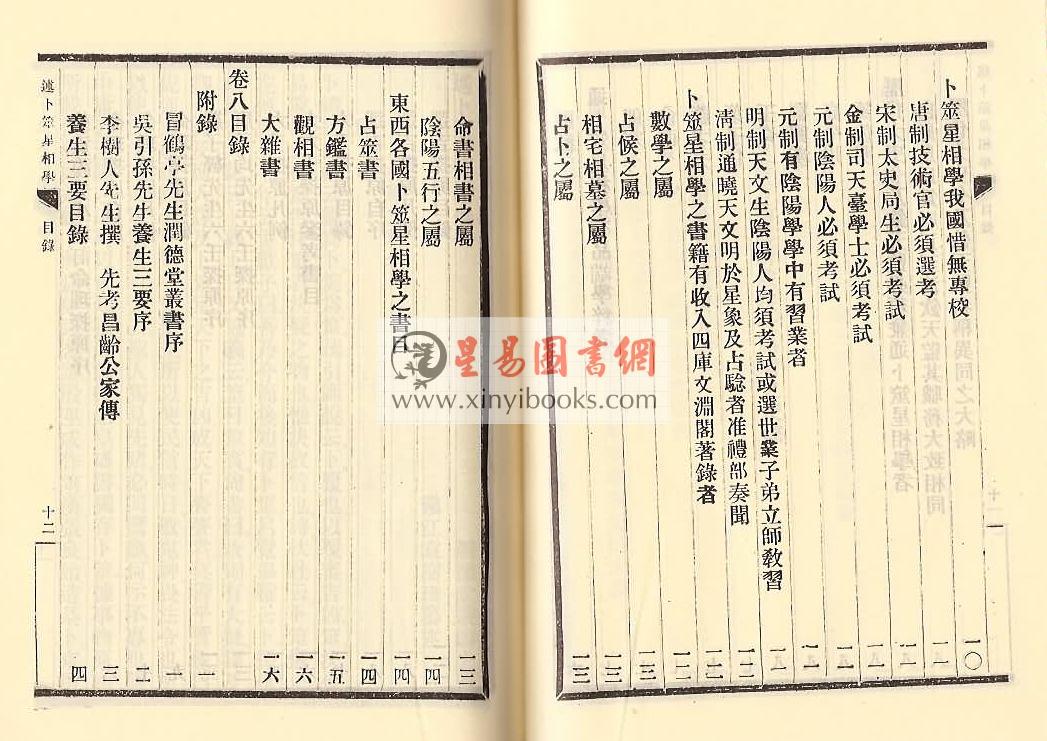 卜筮星相學我國惜無專校 一〇
唐制技術官必須選考 一一
宋制太史局生必須考試 一一
金制司天臺學士必須考試 一一
元制陰陽人必須考試 一一
元制有陰陽學學中有習業者 一一
明制天文生陰陽人均須考試或選世業子弟立師教習 一二
清制通曉天文明於星象及占驗者准禮部奏聞 一二
卜筮星相學之書籍有收入四庫文淵閣著錄者 一二
數學之屬 一三
占候之屬 一三
相宅相墓之屬 一三
占卜之屬 一三
命書相書之屬 一三
陰陽五行之屬 一四
東西各國卜筮星相學之書目 一四
占筮書 一四
方鑑書 一五
觀相書 一六
大雜書 一六
卷八目錄
附錄
冒鶴亭先生潤德堂叢書序 一
吳引孫先生養生三要序 二
李樹人先生撰 先考昌齡公家傳 三
養生三要目錄 四
述卜筮星相學 目錄 十二
星易圖書網
www.xinyibooks.com